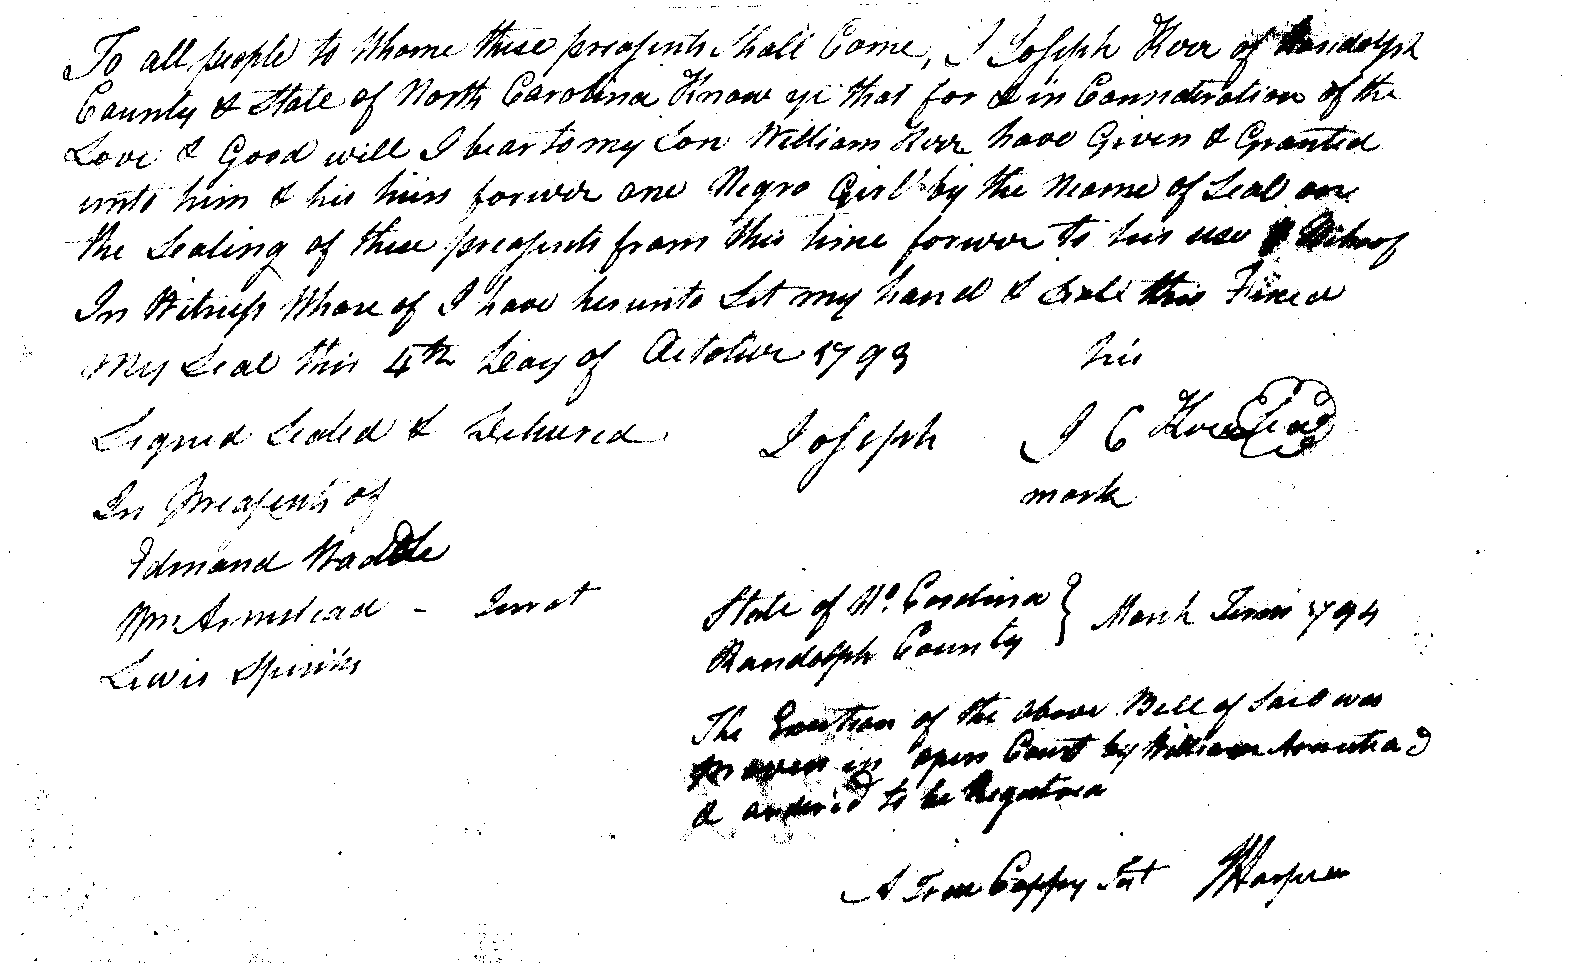 To all people to Whome these preasents Shall Come, I Joseph Kerr of Randolph
County & State of North Carolina Know ye that for & in Consideration of the
Love & Good will I bear to my Son William Kerr have Given & Granted
unto him & his hiirs forever one Negro Girl by the Neame of Seal one
the Sealing of these preasents from this time forever to his use & Behoof
In Witness Whare of I have herunto Set my hand & Seale this Fixed
My Seal this 4th Day of October 1793 his
Signed Sealed & Delivered Joseph J C Kerr Seal
In Preasents of mark
Edmond Waddle
Wm Armstead - Jurat State of No. Carolina } March Term 1794
Lewis Spinks Randolph County
The Exertion of the above Bill of Sail was
proven in open Court by William Armstead
& ordered to be Registrea
A True Coppy Test J Harper